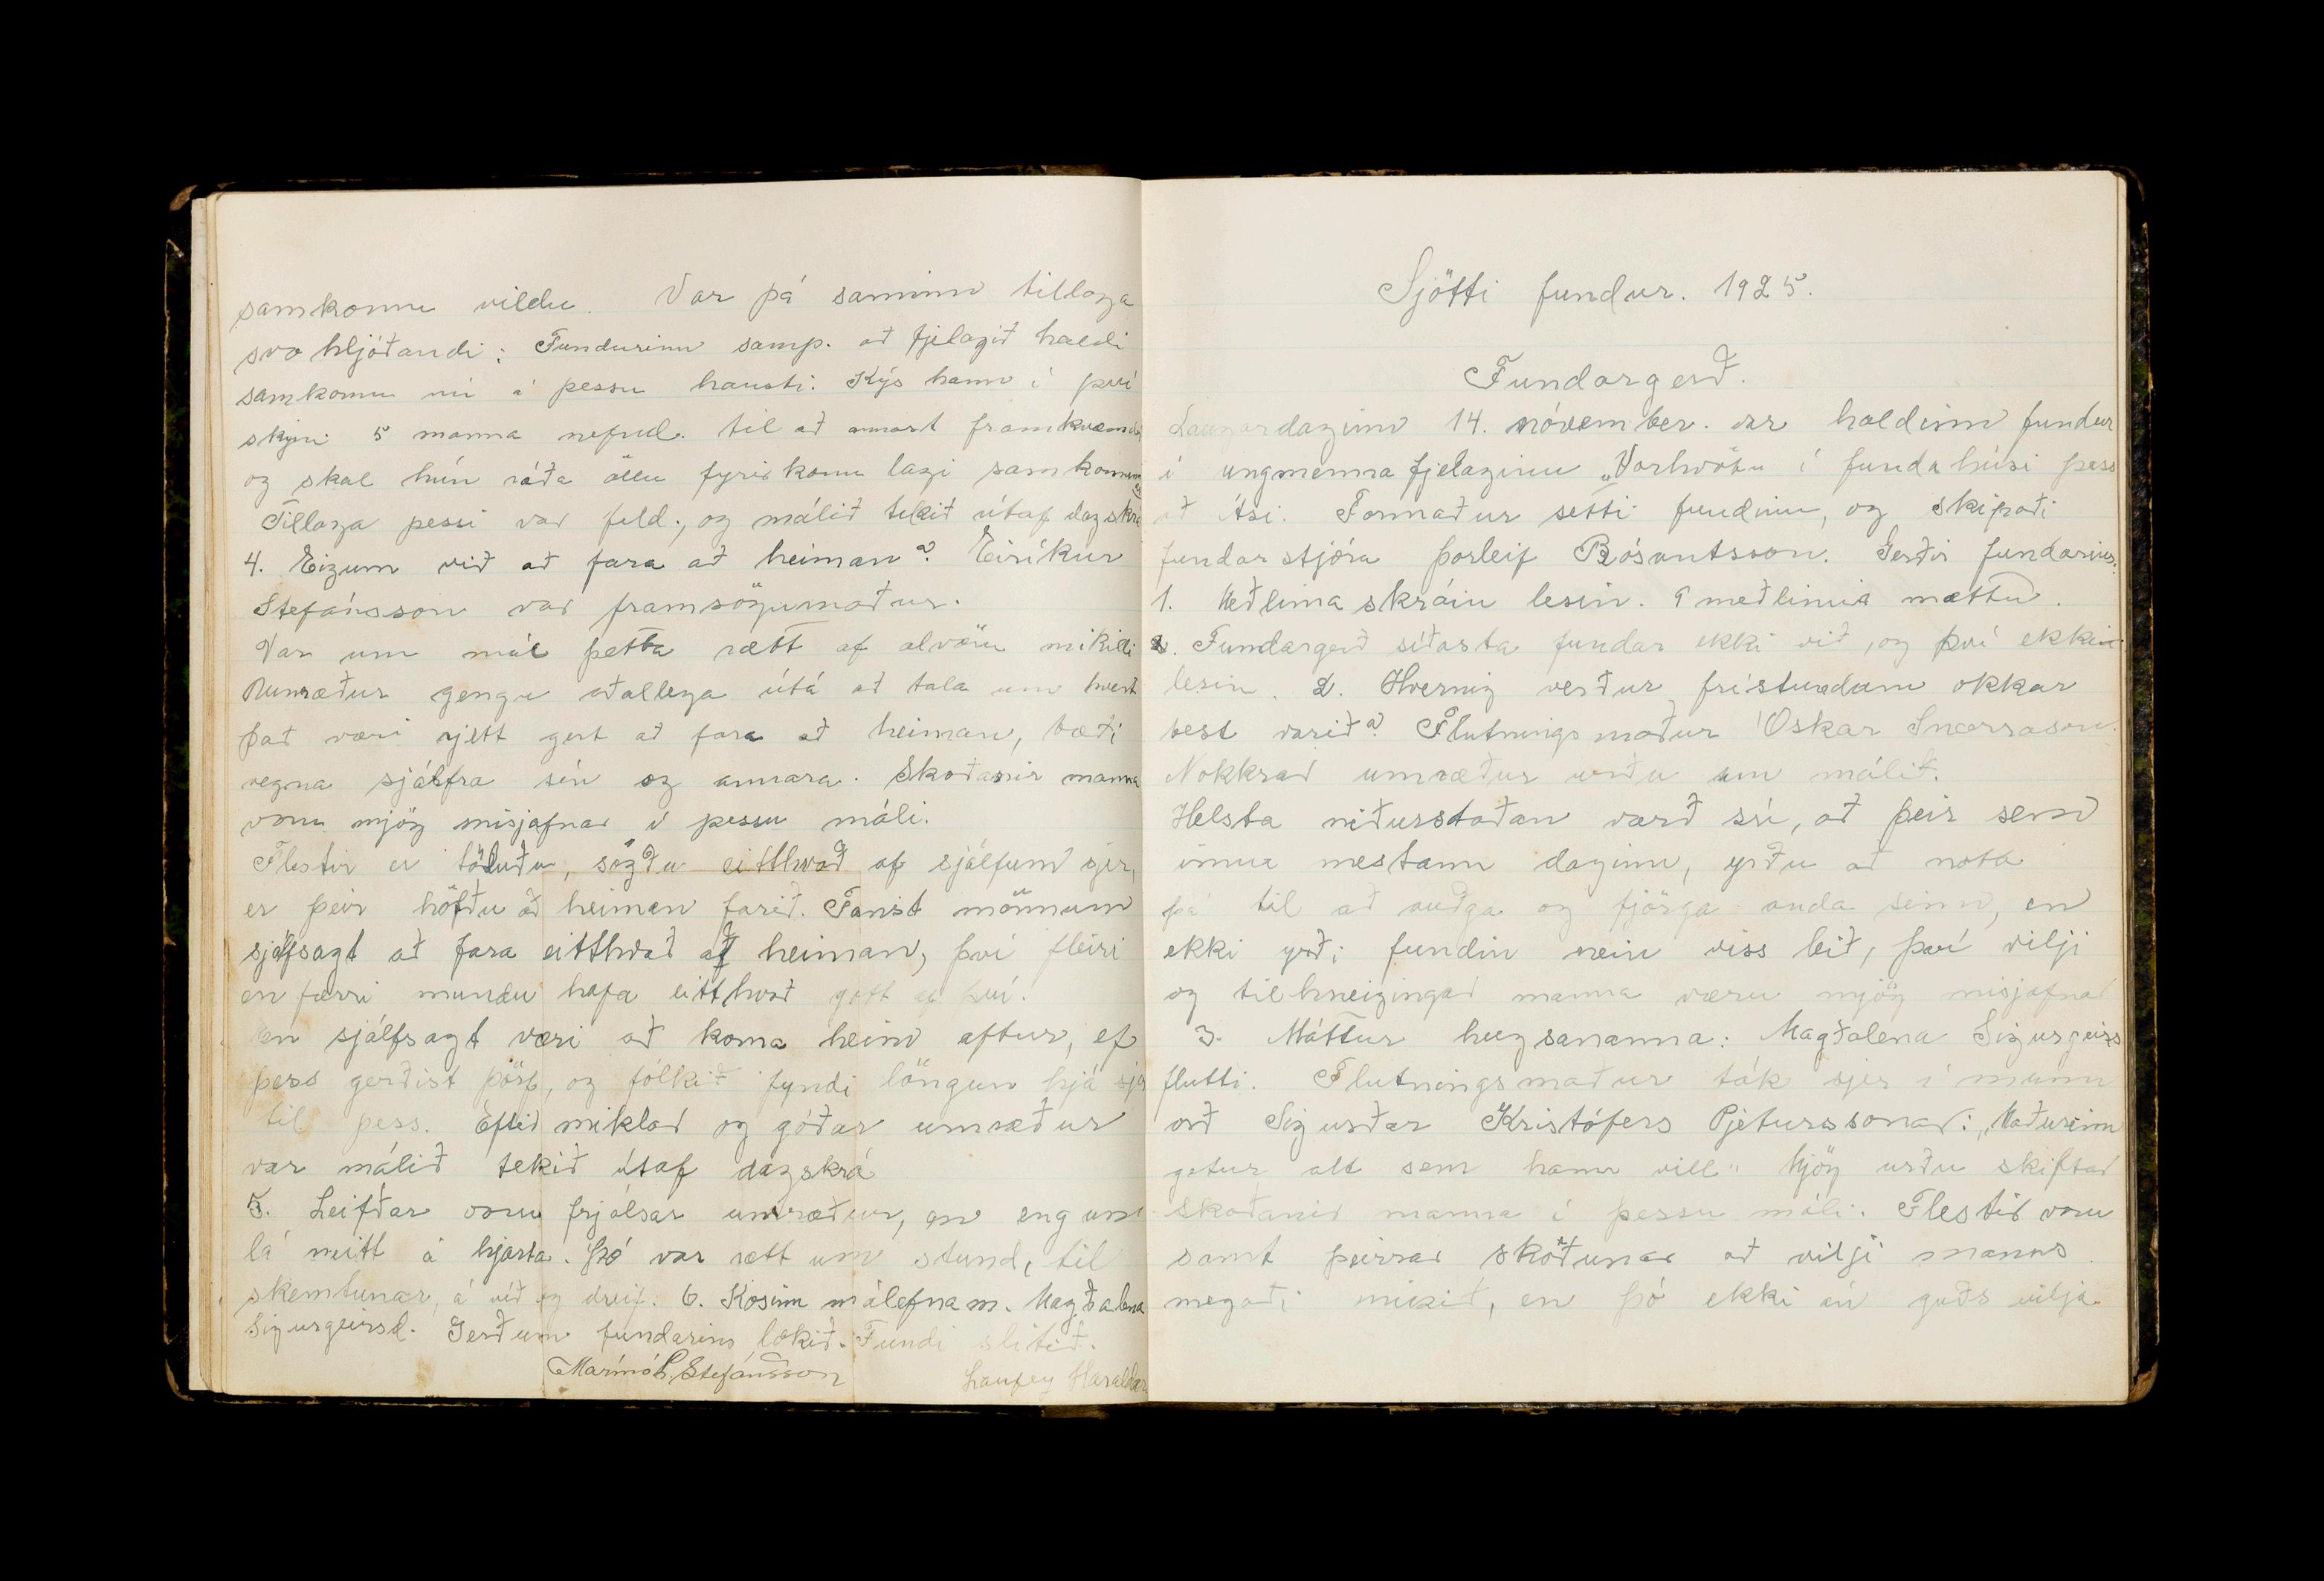 samkomu vildu. Var þá saminn tillaga
svo hljóðandi: Fundurinn samp. að fjelagið haldi
samkomu nú á þessu hausti. Kýs hann í því
skyni 5 manna nefnd. til að annast framkvæmdir
og skal hún ráða öllu fyrirkomulagi samkomunnar
Tillaga þessi var feld., og málið tekið útaf dagskrá
4. Eigum við að fara að heiman? Eiríkur
Stefánsson var framsögumaður.
Var um mál þetta rætt af alvöru mikilli
Umræður gengu aðallega útá að tala um hvort
það væri rjett gert að fara að heiman, bæði
vegna sjálfra sín og annara. Skoðanir manna
voru mjög misjafnar í þessu máli.
Flestir er töluðu, sögðu eitthvað af sjálfum sjer,
er þeir höfðu að heiman farið. Fanst mönnum
sjálfsagt að fara eitthvað að heiman, því fleiri
en færri mundu hafa eitthvað gott af því.
en sjálfsagt væri að koma heim aftur, ef
þess gerðist þörf, og fólkið fyndi löngun hjá sjer
til þess. Eftir miklar og góðar umræður
var málið tekið útaf dagskrá
5. Leifðar voru frjálsar umræður, en engum
lá neitt á hjarta. Þó var rætt um stund, til
skemtunar, á víð og dreif. 6. Kosinn málefnam. Magðalena
Sigurgeirsd. Gerðum fundarins lokið. Fundi slitið.
Marinó L. Stefánsson Laufey Haraldar
Sjötti fundur. 1925.
Fundargerð.
Laugardaginn 14. nóvember. var haldinn fundur
í ungmennafjelaginu „Vorhvöt" í fundahúsi þess
að Ási. Formaður setti fundinn, og skipaði
fundarstjóra Þorleif Rósantsson. Gerðir fundarins:
1. Meðlimaskráin lesin. 9 meðlimir mættu.
2. Fundargerð síðasta fundar ekki við, og því ekki
lesin. 2. Hvernig verður frístundum okkar
best varið? Flutningsmaður Óskar Snorrason.
Nokkrar umræður urðu um málið.
Helsta niðurstaðan varð sú, að þeir sem
innu mestann daginn, yrðu að nota
þá til að auðga og fjörga anda sinn, en
ekki yrði fundin nein viss leið, því vilji
og tilhneigingar manna væru mjög misjafnar
3. Máttur hugsananna: Magðalena Sigurgeirs
flutti. Flutningsmaður tók sjer í munn
orð Sigurðar Kristófers Pjeturssonar: „Maðurinn
getur alt sem hann vill" Mjög urðu skiftar
skoðanir manna í þessu máli. Flestir voru
samt þeirrar skoðunar að vilji manns
megaði mikið, en þó ekki án guðs vilja